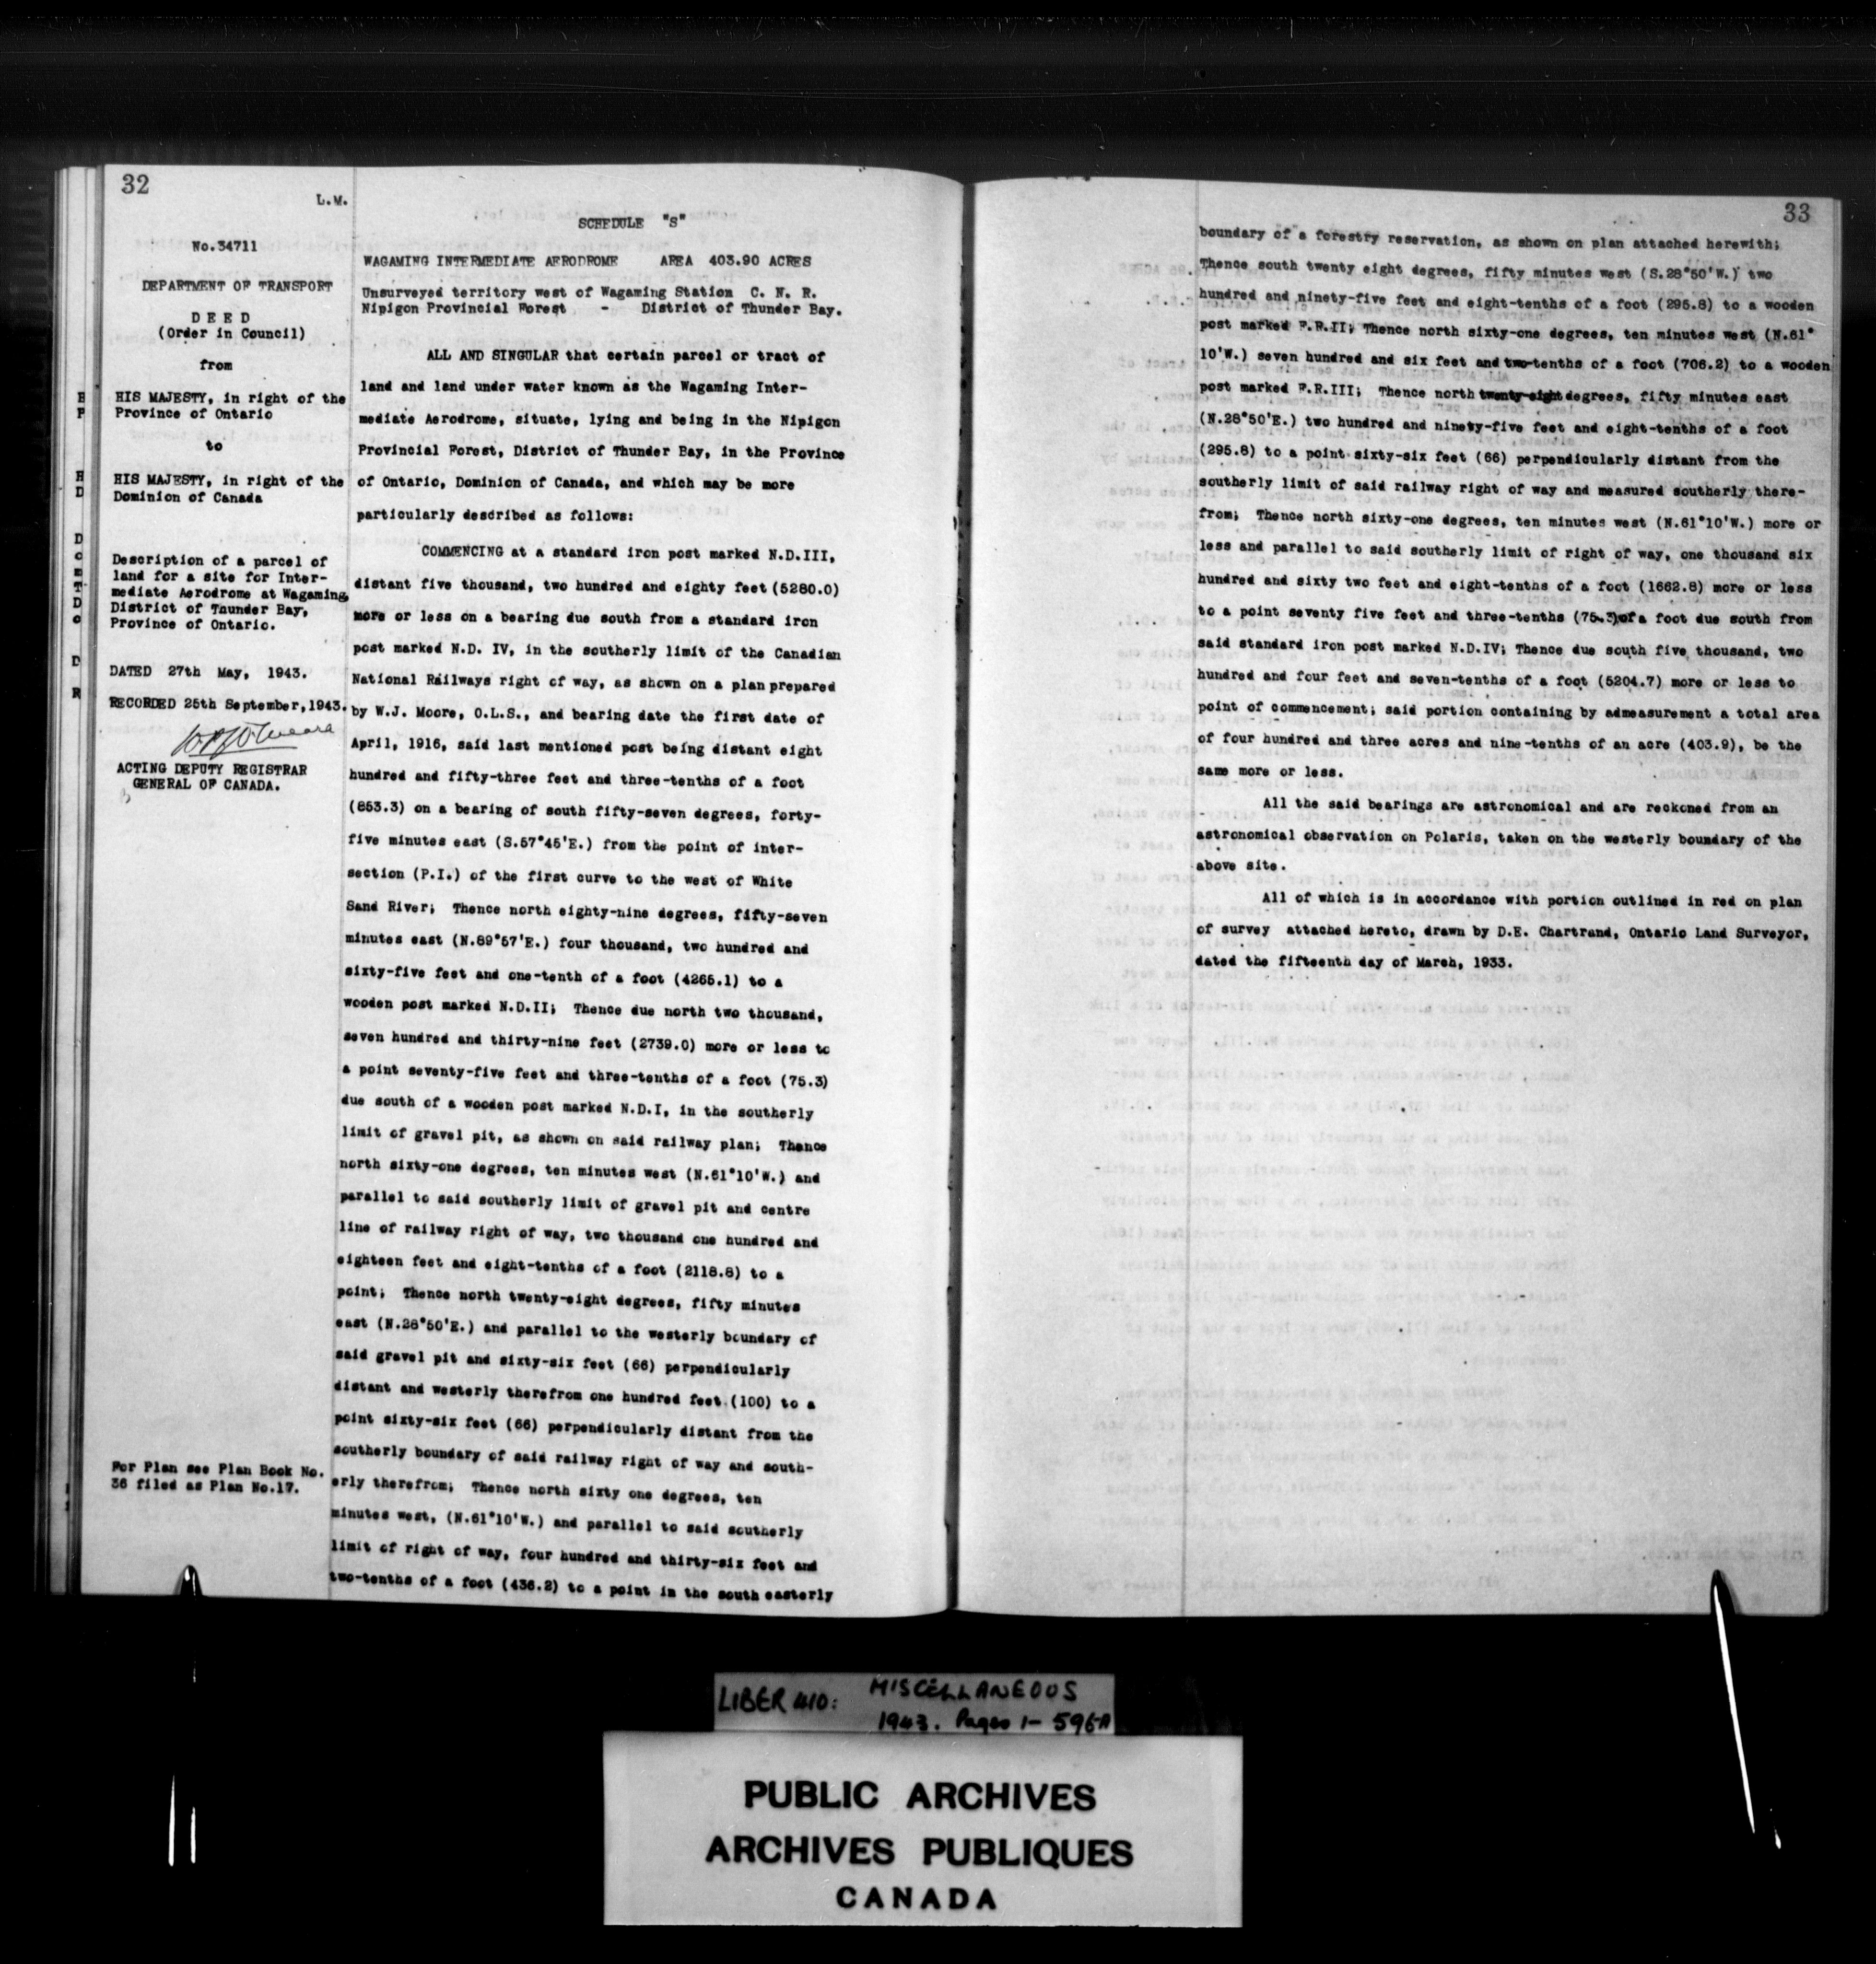 32
L.M.
No.34711
DEPARTMENT OF TRANSPORT
D E E D
(Order in Council)
from
HIS MAJESTY, in right of the
Province of Ontario
to
HIS MAJESTY, in right of the
Dominion of Canada
Description of a parcel of
land for a site for Inter-
mediate Aerodrome at Wagaming,
District of Thunder Bay,
Province of Ontario.
DATED 27th May, 1943.
RECORDED 25th September,1943.
ACTING DEPUTY REGISTRAR
GENERAL OF CANADA.
For Plan see Plan Book No.
36 filed as Plan No.17.
SCHEDULE "S"
WAGAMING INTERMEDIATE AERODROME AREA 403.90 ACRES
Unsurveyed territory west of Wagaming Station C. N. R.
Nipigon Provincial Forest - District of Thunder Bay.
ALL AND SINGULAR that certain parcel or tract of
land and land under water known as the Wagaming Inter-
mediate Aerodrome, situate, lying and being in the Nipigon
Provincial Forest, District of Thunder Bay, in the Province
of Ontario, Dominion of Canada, and which may be more
particularly described as follows:
COMMENCING at a standard iron post marked N.D.III,
distant five thousand, two hundred and eighty feet (5280.0)
more or less on a bearing due south from a standard iron
post marked N.D. IV, in the southerly limit of the Canadian
National Railways right of way, as shown on a plan prepared
by W.J. Moore, O.L.S., and bearing date the first date of
April, 1916, said last mentioned post being distant eight
hundred and fifty-three feet and three-tenths of a foot
(853.3) on a bearing of south fifty-seven degrees, forty-
five minutes east (S.57°45'E.) from the point of inter-
section (P.I.) of the first curve to the west of White
Sand River; Thence north eighty-nine degrees, fifty-seven
minutes east (N.89°57'E.) four thousand, two hundred and
sixty-five feet and one-tenth of a foot (4265.1) to a
wooden post marked N.D.II; Thence due north two thousand,
seven hundred and thirty-nine feet (2739.0) more or less to
a point seventy-five feet and three-tenths of a foot (75.3)
due south of a wooden post marked N.D.I, in the southerly
limit of gravel pit, as shown on said railway plan; Thence
north sixty-one degrees, ten minutes west (N.61°10'W.) and
parallel to said southerly limit of gravel pit and centre
line of railway right of way, two thousand one hundred and
eighteen feet and eight-tenths of a foot (2118.8) to a
point; Thence north twenty-eight degrees, fifty minutes
east (N.28°50'E.) and parallel to the westerly boundary of
said gravel pit and sixty-six feet (66) perpendicularly
distant and westerly therefrom one hundred feet (100) to a
point sixty-six feet (66) perpendicularly distant from the
southerly boundary of said railway right of way and south-
erly therefrom; Thence north sixty one degrees, ten
minutes west, (N.61°10'W.) and parallel to said southerly
limit of right of way, four hundred and thirty-six feet and
two-tenths of a foot (436.2) to a point in the south easterly
33
boundary of a forestry reservation, as shown on plan attached herewith;
Thence south twenty eight degrees, fifty minutes west (S.28°50'W.) two
hundred and ninety-five feet and eight-tenths of a foot (295.8) to a wooden
post marked F.R.II; Thence north sixty-one degrees, ten minutes west (N.61°
10'W.) seven hundred and six feet and two-tenths of a foot (706.2) to a wooden
post marked F.R.III; Thence north twenty-eight degrees, fifty minutes east
(N.28°50'E.) two hundred and ninety-five feet and eight-tenths of a foot
(295.8) to a point sixty-six feet (66) perpendicularly distant from the
southerly limit of said railway right of way and measured southerly there-
from; Thence north sixty-one degrees, ten minutes west (N.61°10'W.) more or
less and parallel to said southerly limit of right of way, one thousand six
hundred and sixty two feet and eight-tenths of a foot (1662.8) more or less
to a point seventy five feet and three-tenths (75.3)of a foot due south from
said standard iron post marked N.D.IV; Thence due south five thousand, two
hundred and four feet and seven-tenths of a foot (5204.7) more or less to
point of commencement; said portion containing by admeasurement a total area
of four hundred and three acres and nine-tenths of an acre (403.9), be the
same more or less.
All the said bearings are astronomical and are reckoned from an
astronomical observation on Polaris, taken on the westerly boundary of the
above site.
All of which is in accordance with portion outlined in red on plan
of survey attached hereto, drawn by D.E. Chartrand, Ontario Land Surveyor,
dated the fifteenth day of March, 1933.
LIBER 410: MISCELLANEOUS
1943. Pages 1-596A
PUBLIC ARCHIVES
ARCHIVES PUBLIQUES
CANADA